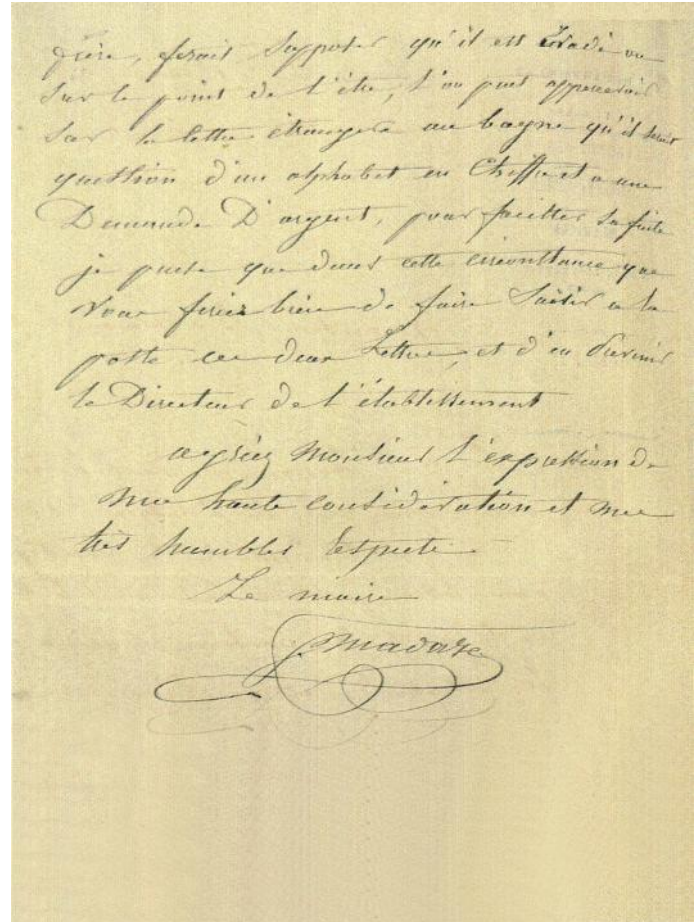 frère, ferait supposer qu'il est Evadé ou
sur le point de l'être, l'on peut appercevoir
sur la lettre étrangere au bagne qu'il serait
question d'un alphabet en Chiffre et a une
Demande D'argent, pour faciliter sa fuite
je pense que dans cette circonstance que
vous feriez bien de faire saisir a la
poste ces deux Lettres, et d'en Prévenir
le Directeur de l'établissement
agréez Monsieur l'expression de
ma haute considération et mes
très humbles respects
Le maire